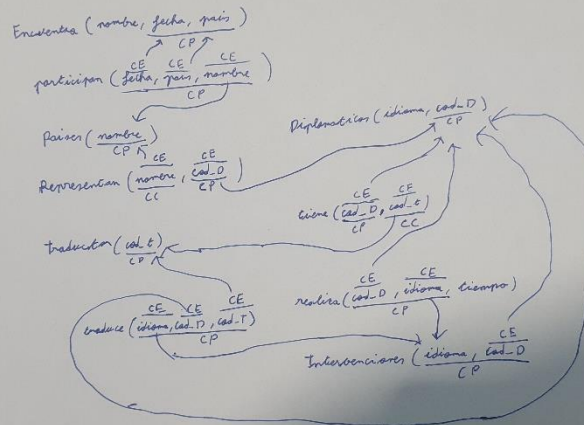 Encuentra (nombre, fecha, país)
CP
CE CE CE
participan (fecha, país, nombre)
CP
Países (nombre)
CP
Diplomaticos (idioma, cod_D)
CP
CE CE
Representan (nombre, cod_D)
CC CP
CE CE
tiene (cod_D, cod_t)
CP CC
traductor (cod_t)
CP
CE CE
realiza (cod_D, idioma, tiempo)
CP
CE CE CE
traduce (idioma, cod_D, cod_T)
CP
CE
Intervenciones (idioma, cod_D)
CP